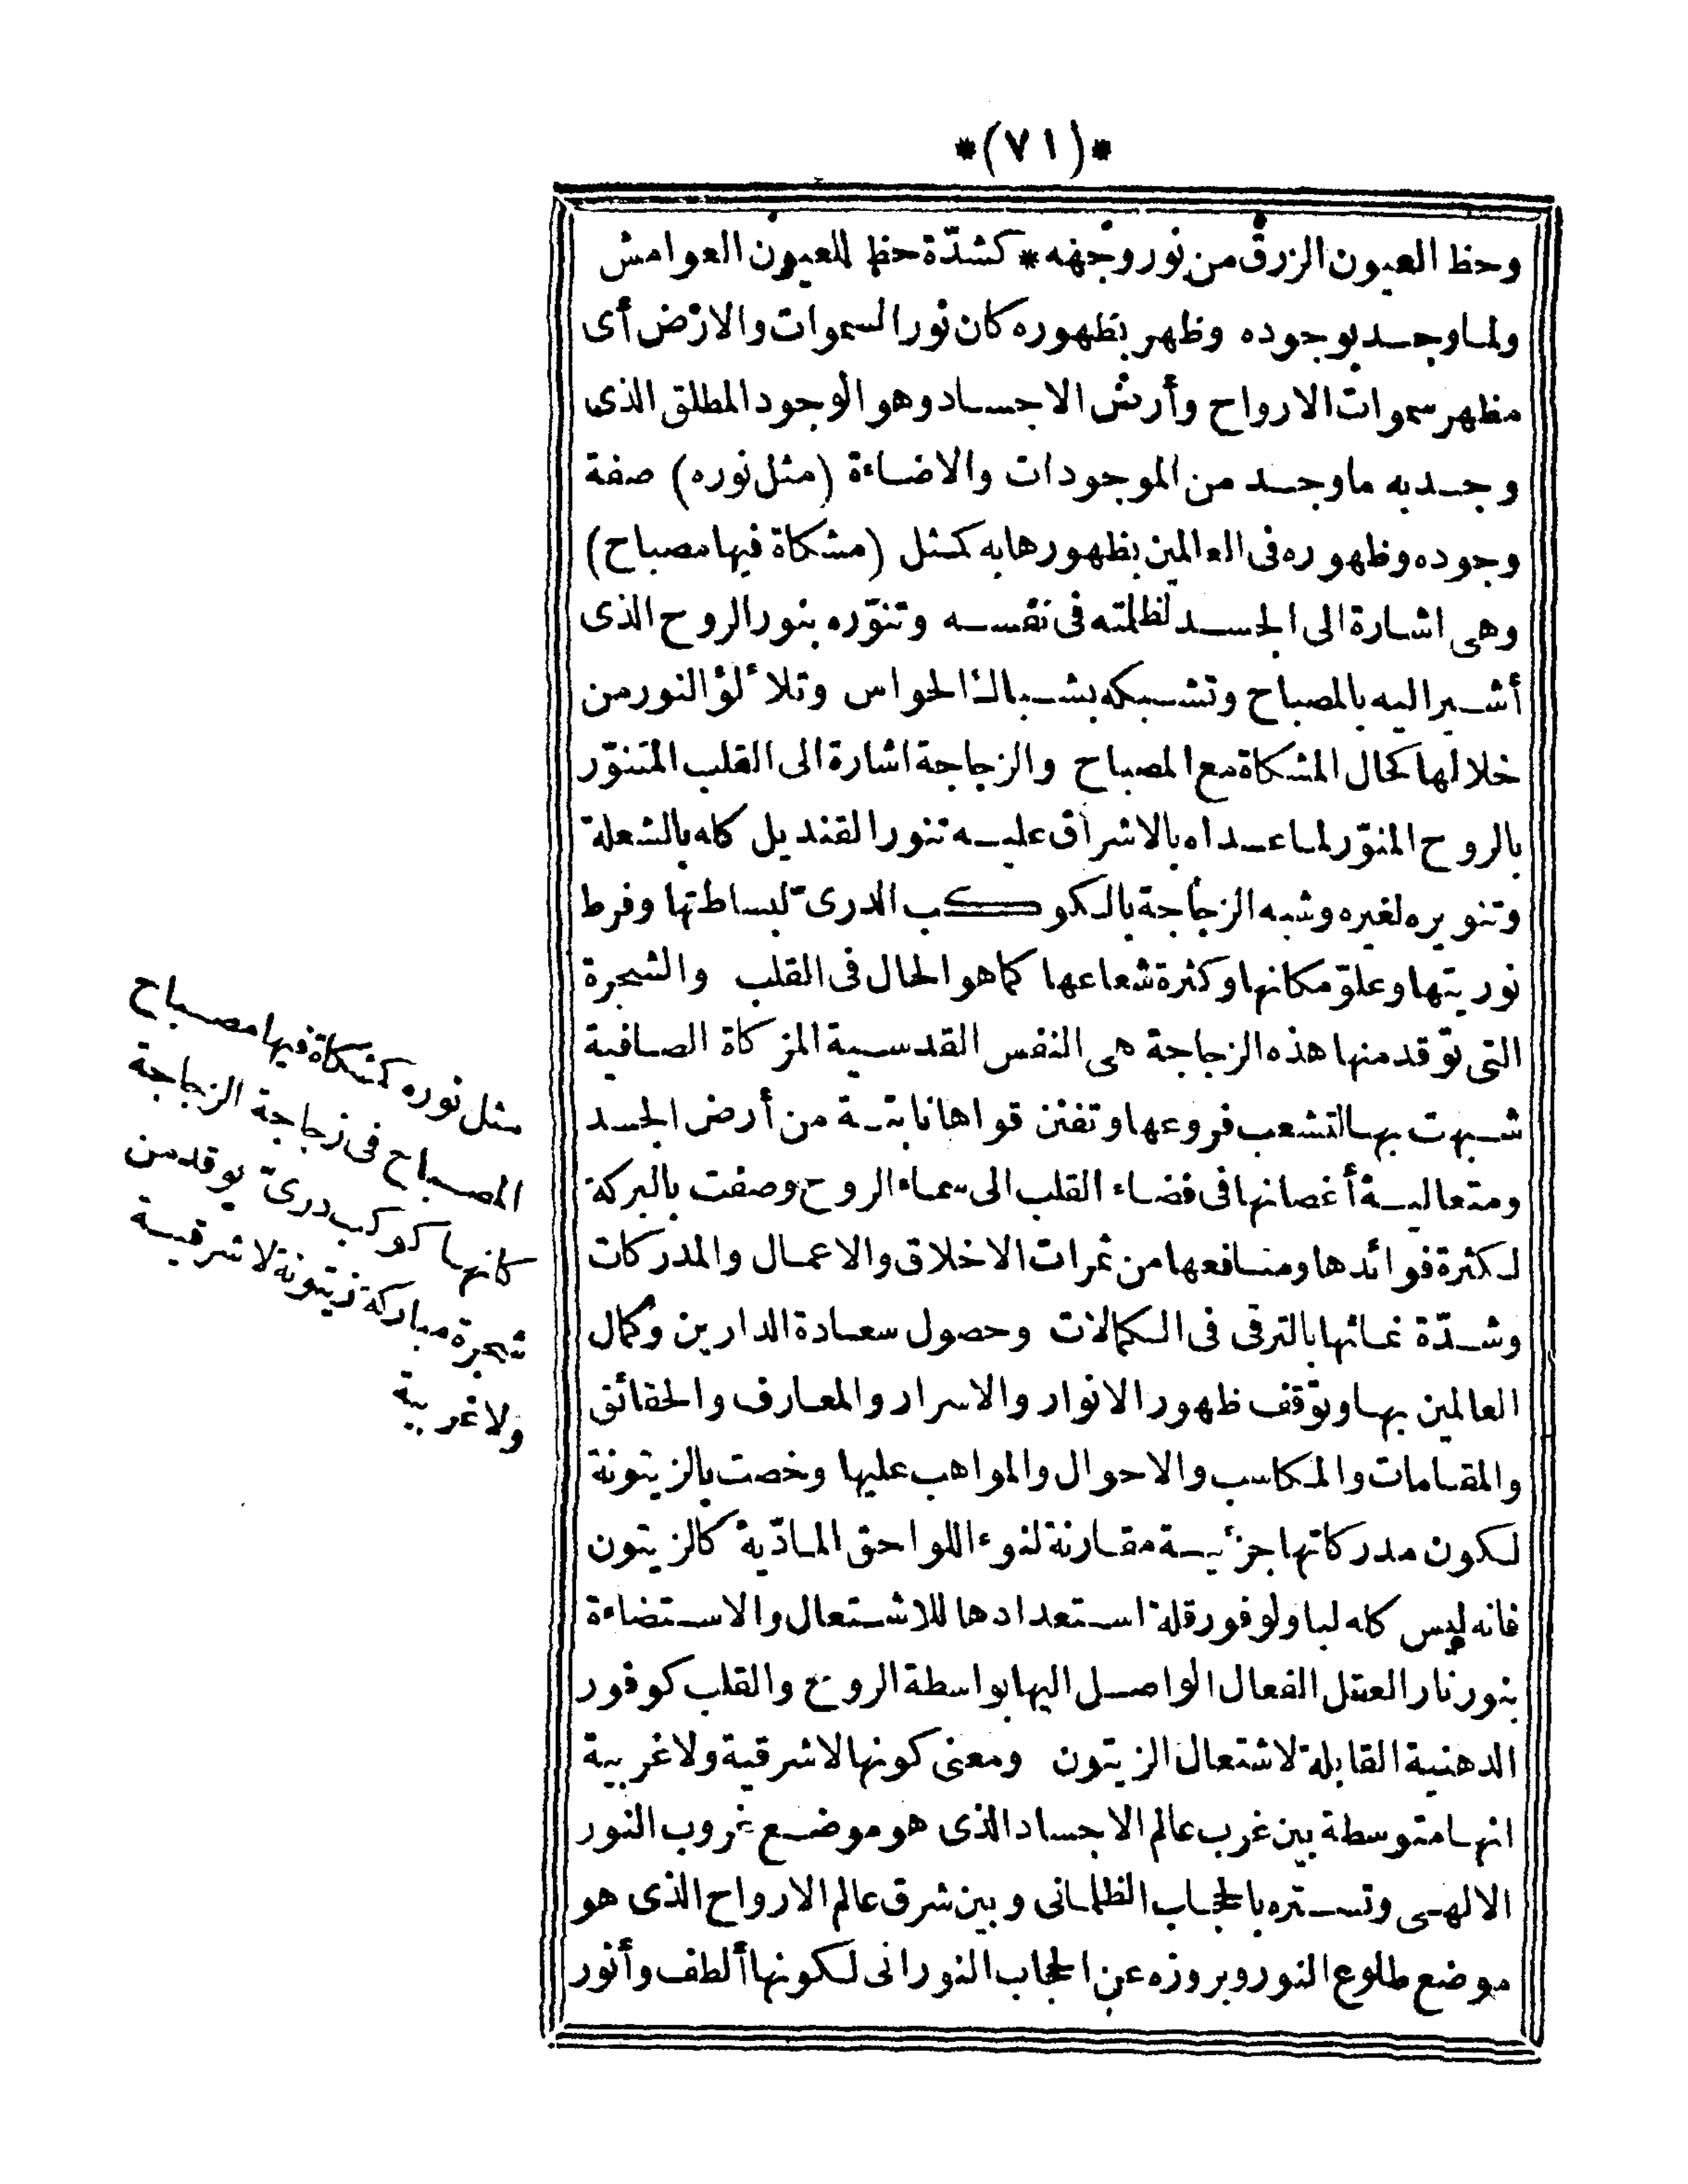 *(٧١)*
وحظ العيون الزرق من نور وجهه * كشدّة حظ للعيون العوامش
ولما وجد بوجوده وظهر بظهوره كان نور السموات والارض أى
مظهر سموات الارواح وأرض الاجساد وهو الوجود المطلق الذى
وجد به ما وجد من الموجودات والاضاءة (مثل نوره) صفة
وجوده وظهوره فى العالمين بظهورها به كمثل (مشكاة فيها مصباح)
وهى اشارة الى الجسد لظلمته فى نفسه وتنوّره بنور الروح الذى
أشير اليه بالمصباح وتشبكه بشباك الحواس وتلألؤ النور من
خلالها كحال المشكاة مع المصباح والزجاجة اشارة الى القلب المتنوّر
بالروح المنوّر لما عداه بالاشراق عليه تنور القنديل كله بالشعلة
وتنويره لغيره وشبه الزجاجة بالكوكب الدرىّ لبساطتها وفرط
نوريتها وعلوّ مكانها وكثرة شعاعها كما هو الحال فى القلب والشجرة
التى توقد منها هذه الزجاجة هى النفس القدسية المزكاة الصافية
شبهت بها لتشعب فروعها وتفنن قواها نابتة من أرض الجسد
ومتعالية أغصانها فى فضاء القلب الى سماء الروح وصفت بالبركة
لكثرة فوائدها ومنافعها من ثمرات الاخلاق والاعمال والمدركات
وشدّة نمائها بالترقى فى الكمالات وحصول سعادة الدارين وكمال
العالمين بها وتوقف ظهور الانوار والاسرار والمعارف والحقائق
والمقامات والمكاسب والاحوال والمواهب عليها وخصت بالزيتونة
لكون مدركاتها جزئية مقارنة لنوء اللواحق المادّية كالزيتون
فانه ليس كله لبا ولوفور قلة استعدادها للاشتعال والاستضاءة
بنور نار العقل الفعال الواصل اليها بواسطة الروح والقلب كوفور
الدهنية القابلة لاشتعال الزيتون ومعنى كونها لاشرقية ولاغربية
انها متوسطة بين غرب عالم الاجساد الذى هو موضع غروب النور
الالهى وتستره بالحجاب الظلمانى وبين شرق عالم الارواح الذى هو
موضع طلوع النور وبروزه عن الحجاب النورانى لكونها ألطف وأنور
مثل نوره كمشكاة فيها مصباح
المصباح فى زجاجة الزجاجة
كانها كوكب درىّ يوقد من
شجرة مباركة زيتونة لا شرقية
ولا غربية